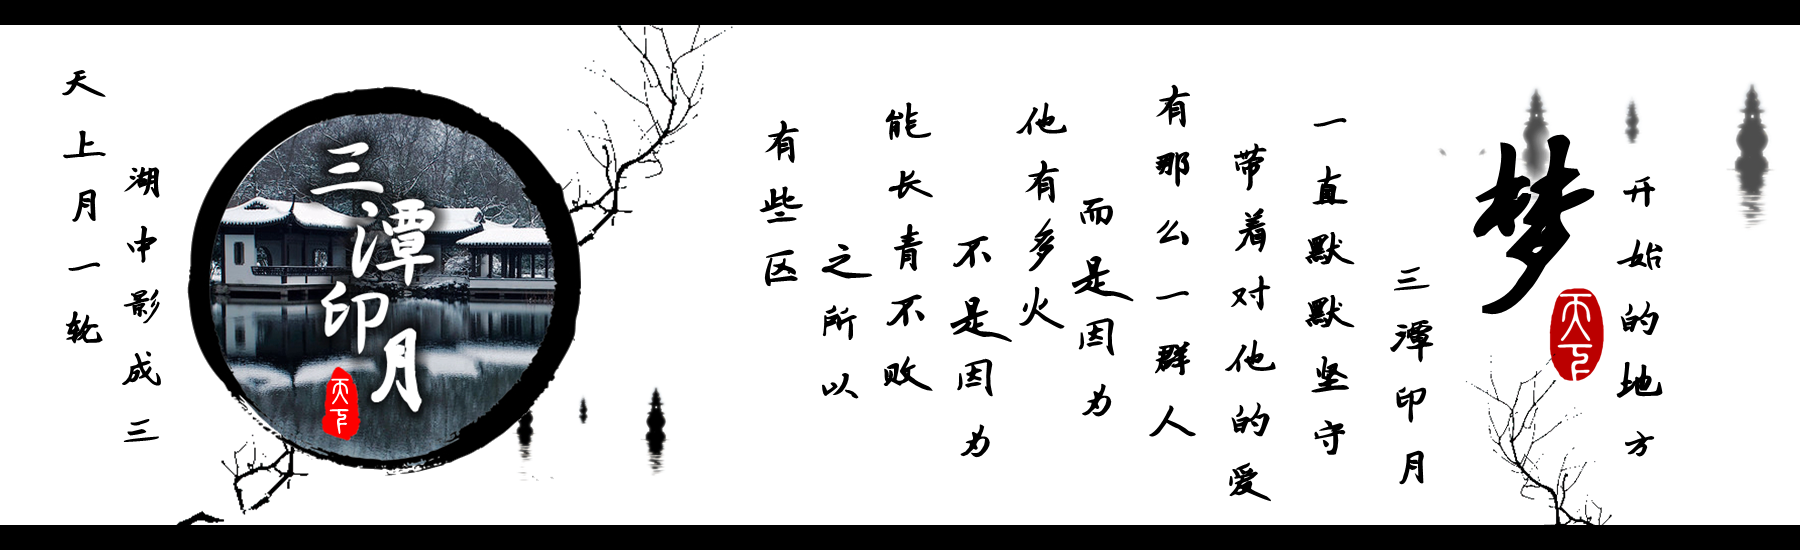 梦
开始的地方
天下
三潭印月
一直默默坚守
带着对他的爱
有那么一群人
而是因为
他有多火
不是因为
能长青不败
之所以
有些区
三潭印月
天下
天上月一轮
湖中影成三